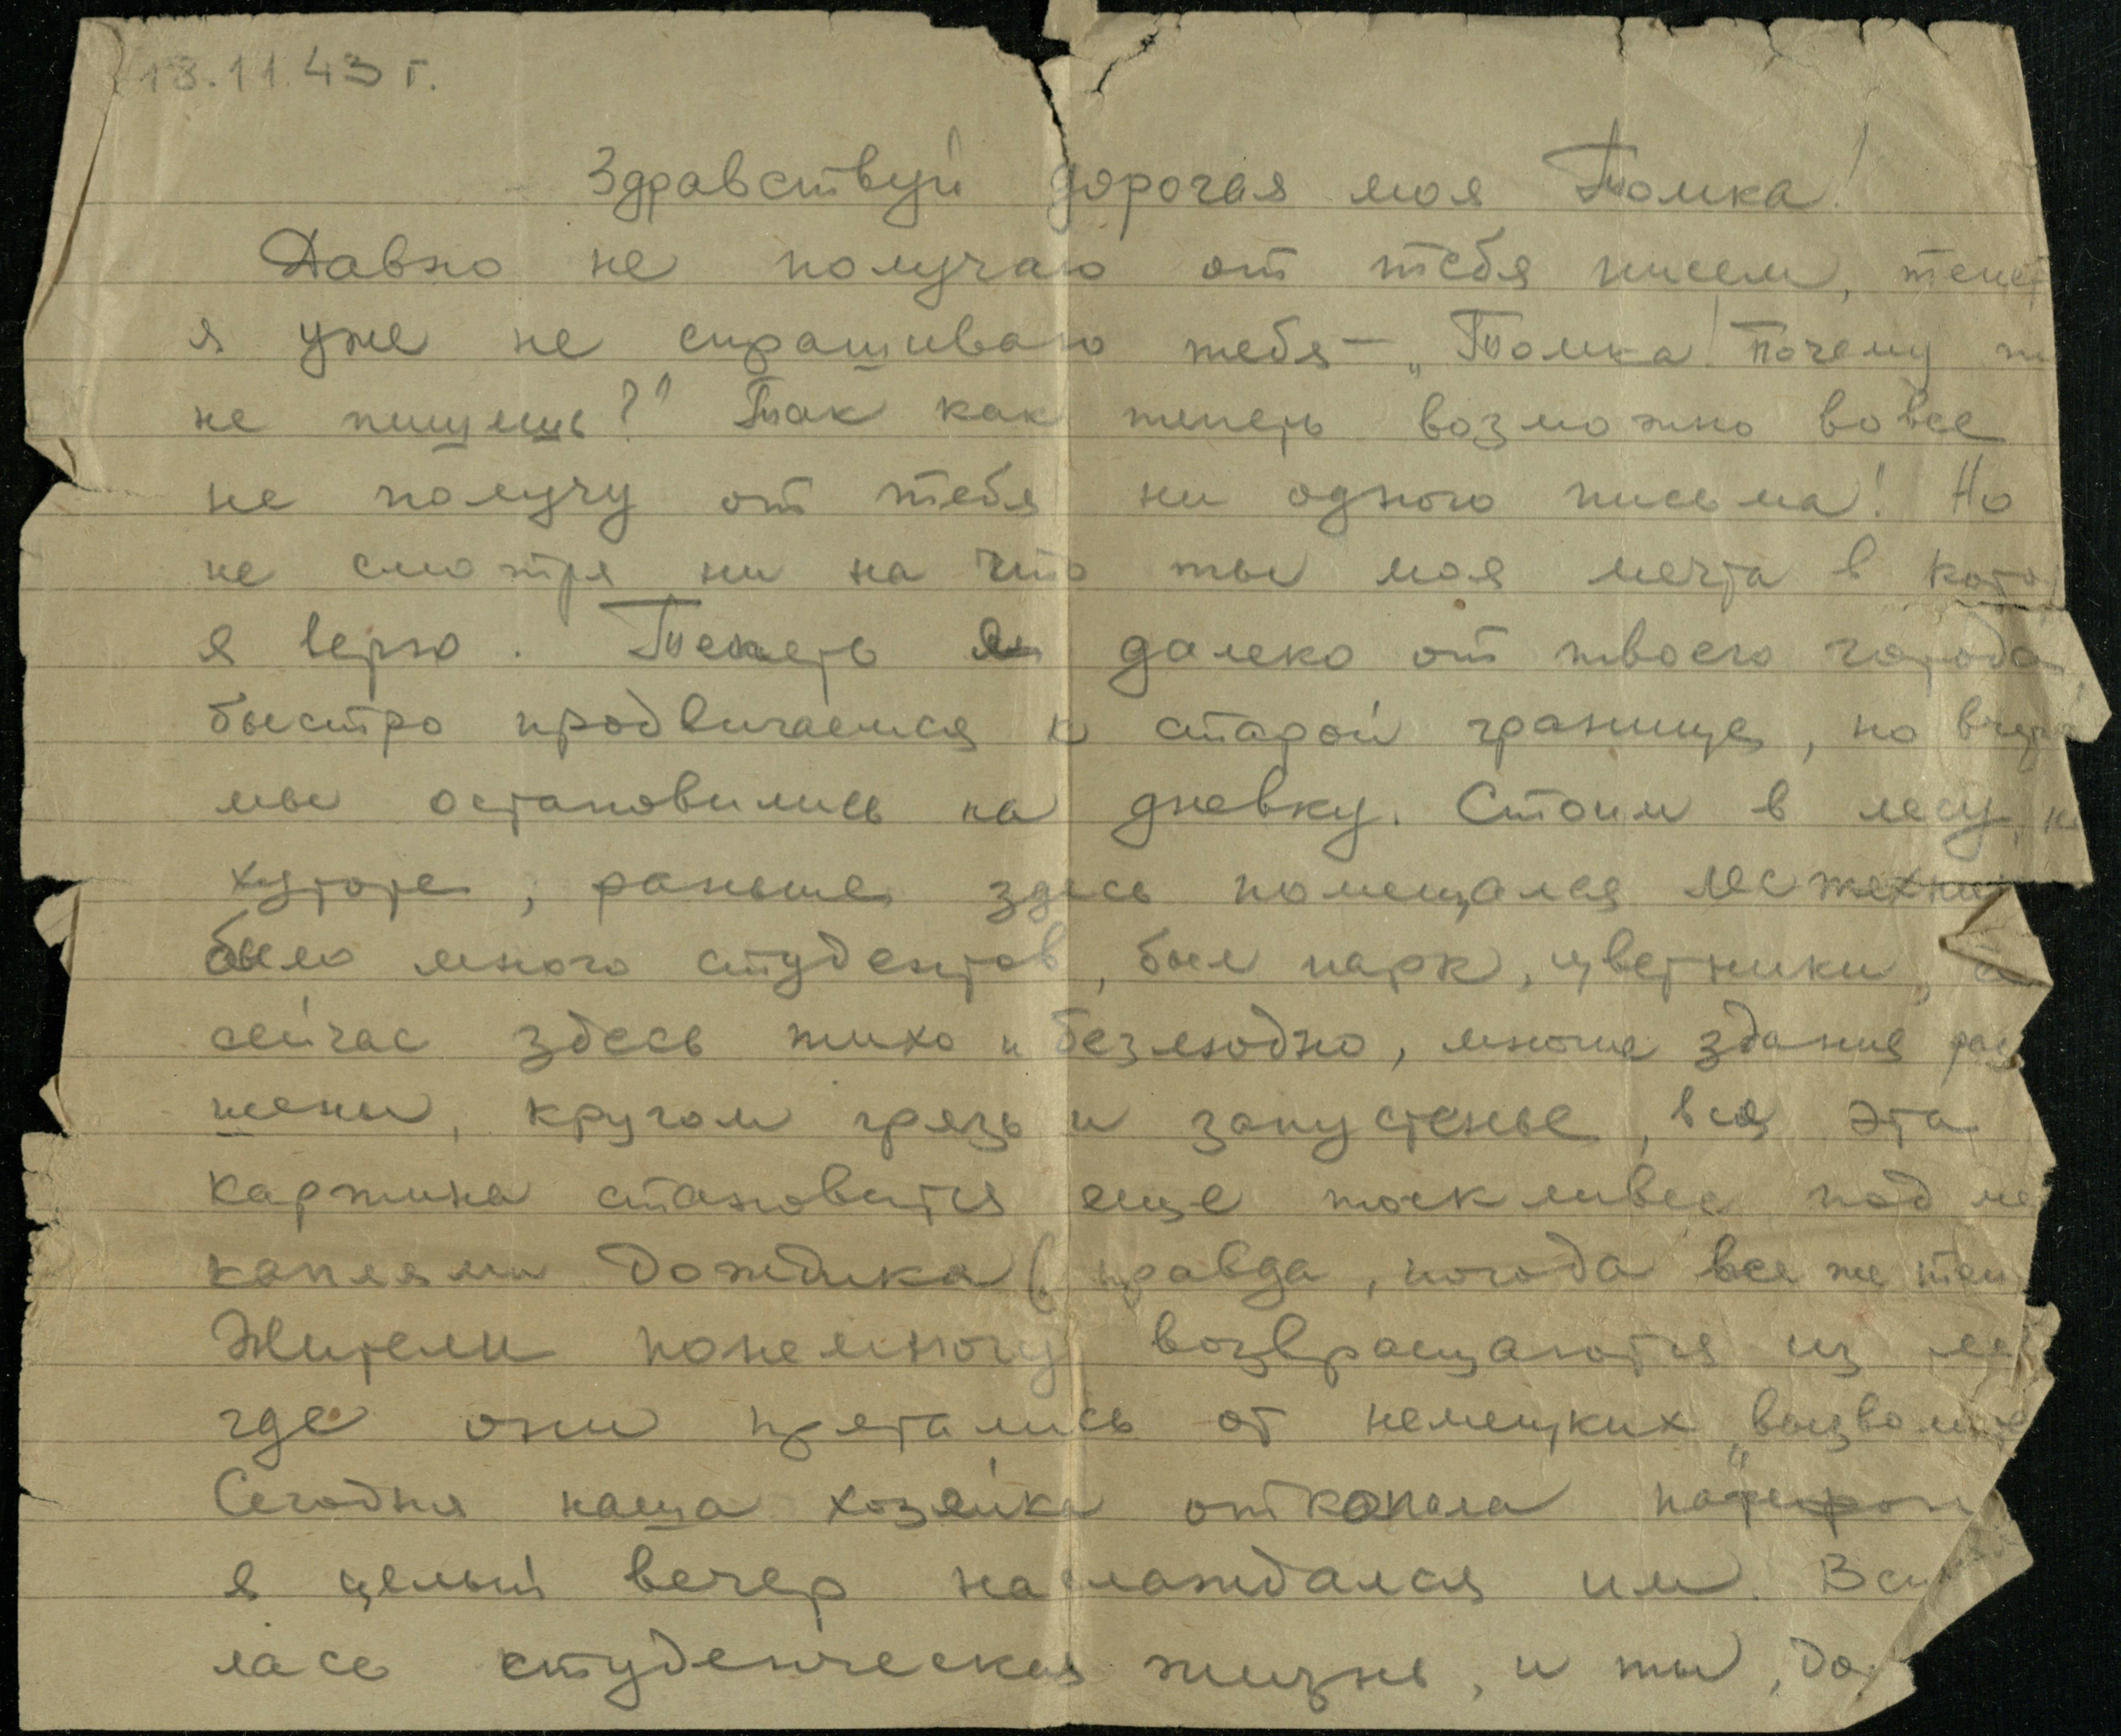 18.11.43 г.
Здравствуй дорогая моя Томка!
Давно не получаю от тебя писем,
я уже не спрашиваю тебя — „Томка! Почему
не пишешь?" Так как теперь возможно вовсе
не получу от тебя ни одного письма! Но
не смотря ни на что ты моя мечта в
я верю. Теперь я далеко от твоего города,
быстро продвигаемся к старой границе, но вчера
мы остановились на дневку. Стоим в лесу,
хуторе, раньше здесь помещался лестехни
было много студентов, был парк, цветники, а
сейчас здесь тихо и безлюдно, многие здания раз
шены, кругом грязь и запустенье, вся эта
картина становится еще тоскливее под
каплями дождика (правда, погода все же
Жители понемногу возвращаются из
где они прятались от немецких „вызволит
Сегодня наша хозяйка откопала патефон
я целый вечер наслаждался им.
лась студенческая жизнь, и ты,